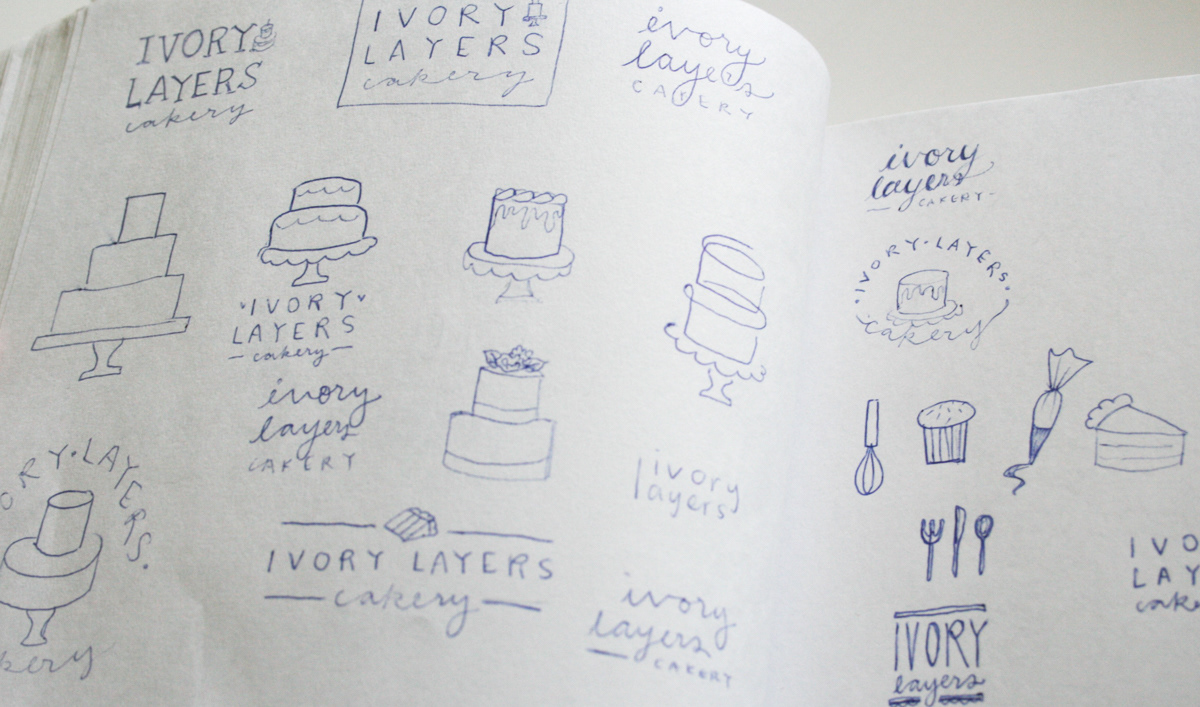 IVORY
LAYERS
cakery
IVORY
LAYERS
cakery
ivory
layers
CAKERY
IVORY
LAYERS
cakery
ivory
layers
CAKERY
ORY·LAYERS.
kery
IVORY LAYERS
cakery
ivory
layers
ivory
layers
CAKERY
ivory
layers
CAKERY
·IVORY·LAYERS·
cakery
IVORY
layers
IVO
LAY
cak